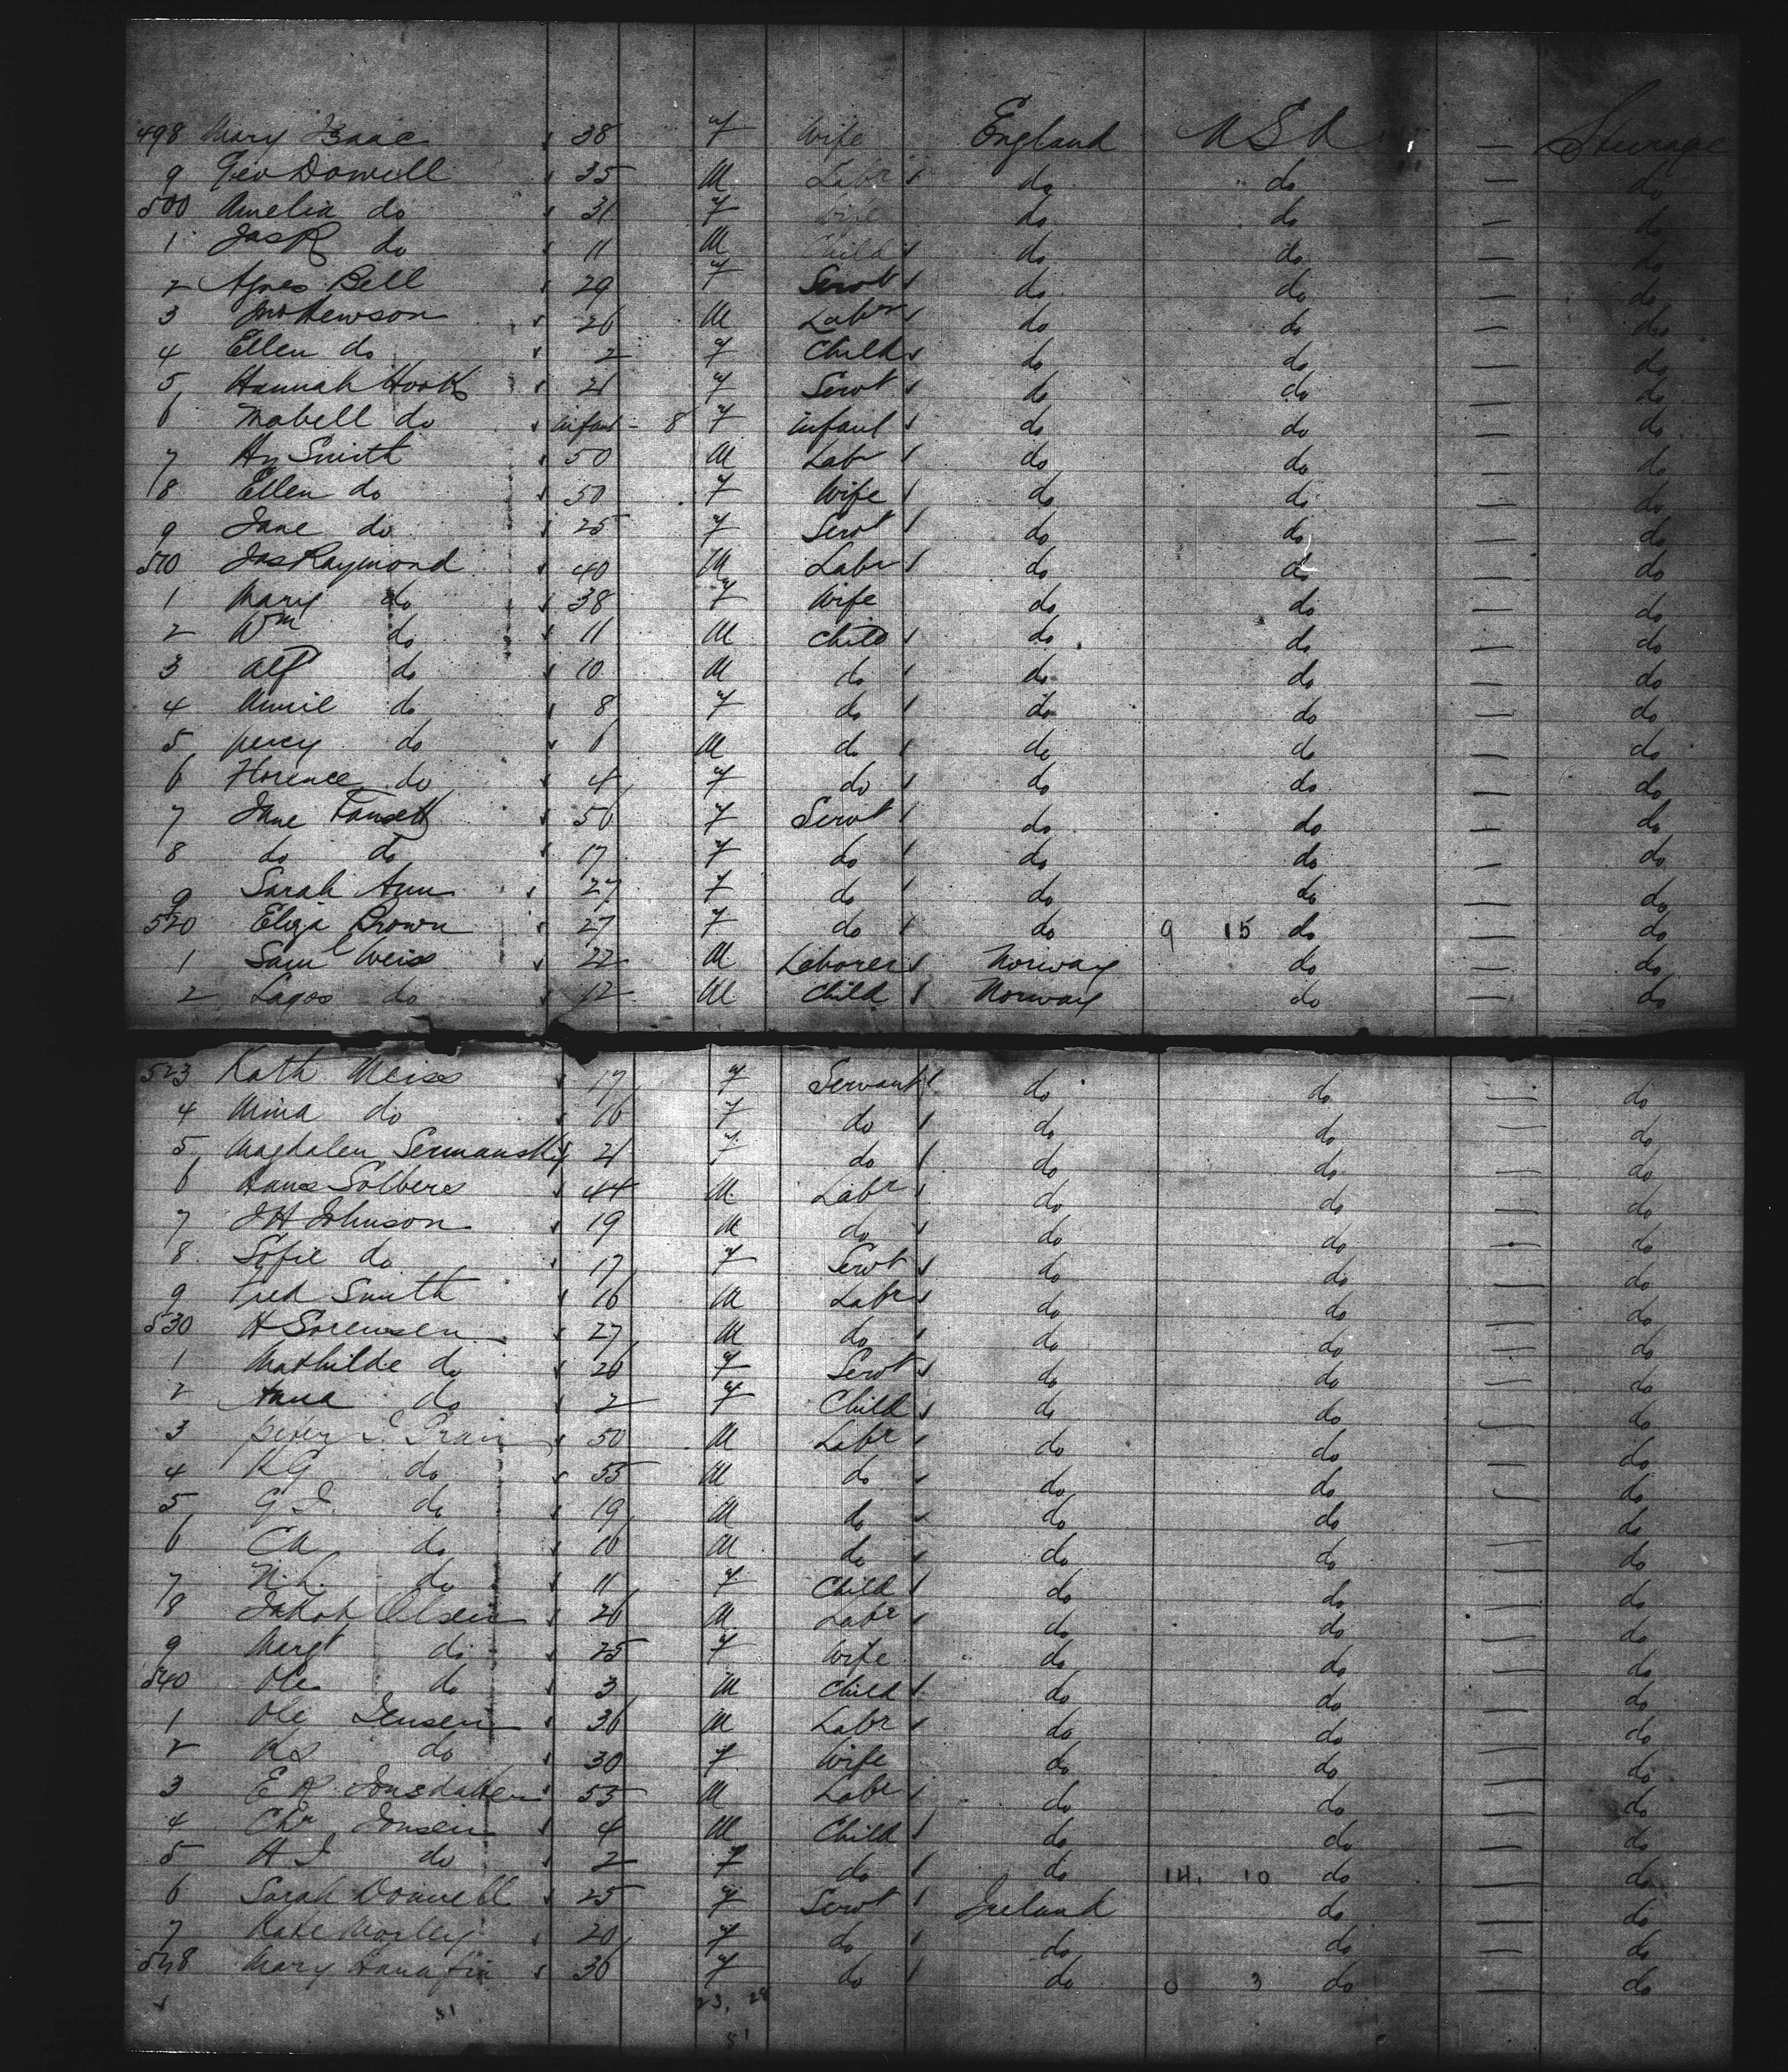 498 Mary Isaac 38 f Wife England USA — Steerage
9 Geo Dowell 35 M Labr do do — do
500 Amelia do 31 f Wife do do — do
1 Jas R do 11 M Child do do — do
2 Agnes Bell 29 f Servt do do — do
3 Jno Hewson 26 M Labr do do — do
4 Ellen do 2 f Child do do — do
5 Hannah Hook 21 f Servt do do — do
6 Mabell do infant - 8 f infant do do — do
7 Hy Smith 50 M Labr do do — do
8 Ellen do 50 f Wife do do — do
9 Jane do 25 f Servt do do — do
510 Jas Raymond 40 M Labr do do — do
1 Mary do 38 f Wife do do — do
2 Wm do 11 M Child do do — do
3 Alf do 10 M do do do — do
4 Annie do 8 f do do do — do
5 percy do 6 M do do do — do
6 Florence do 4 f do do do — do
7 Jane 56 f Servt do do — do
8 do do 17 f do do do — do
9 Sarah Ann 27 f do do do — do
520 Eliza Brown 27 f do do 9 15 do — do
1 Saml Weiss 22 M Laborer Norway do — do
2 Lagos do 12 M Child Norway do — do
523 Kath Weiss 17 f Servant do do — do
4 Mina do 16 f do do do — do
5 Magdalen Sermansky 21 f do do do — do
6 Hans Solberg 44 M Labr do do — do
7 J H Johnson 19 M do do do — do
8 Sofie do 17 f Servt do do — do
9 Fred Smith 16 M Labr do do — do
530 H Sorensen 27 M do do do — do
1 Mathilde do 26 f Servt do do — do
2 Anna do 2 f Child do do — do
3 peter 50 M Labr do do — do
4 KG do 55 M do do do — do
5 G I do 19 M do do do — do
6 CA do 16 M do do do — do
7 do 11 f Child do do — do
8 Jakob Olsen 26 M Labr do do — do
9 Margt do 25 f Wife do do — do
540 Ole do 3 M Child do do — do
1 Ole Jensen 36 M Labr do do — do
2 Ks do 30 f Wife do do — do
3 E R 55 M Labr do do — do
4 Chr Jonsen 4 M Child do do — do
5 H J do 2 f do do 14, 10 do — do
6 Sarah Donnell 25 f Servt Ireland do — do
7 Kate Morley 20 f do do do — do
548 Mary Hanafin 36 f do do 0 3 do — do
51 23, 28
51